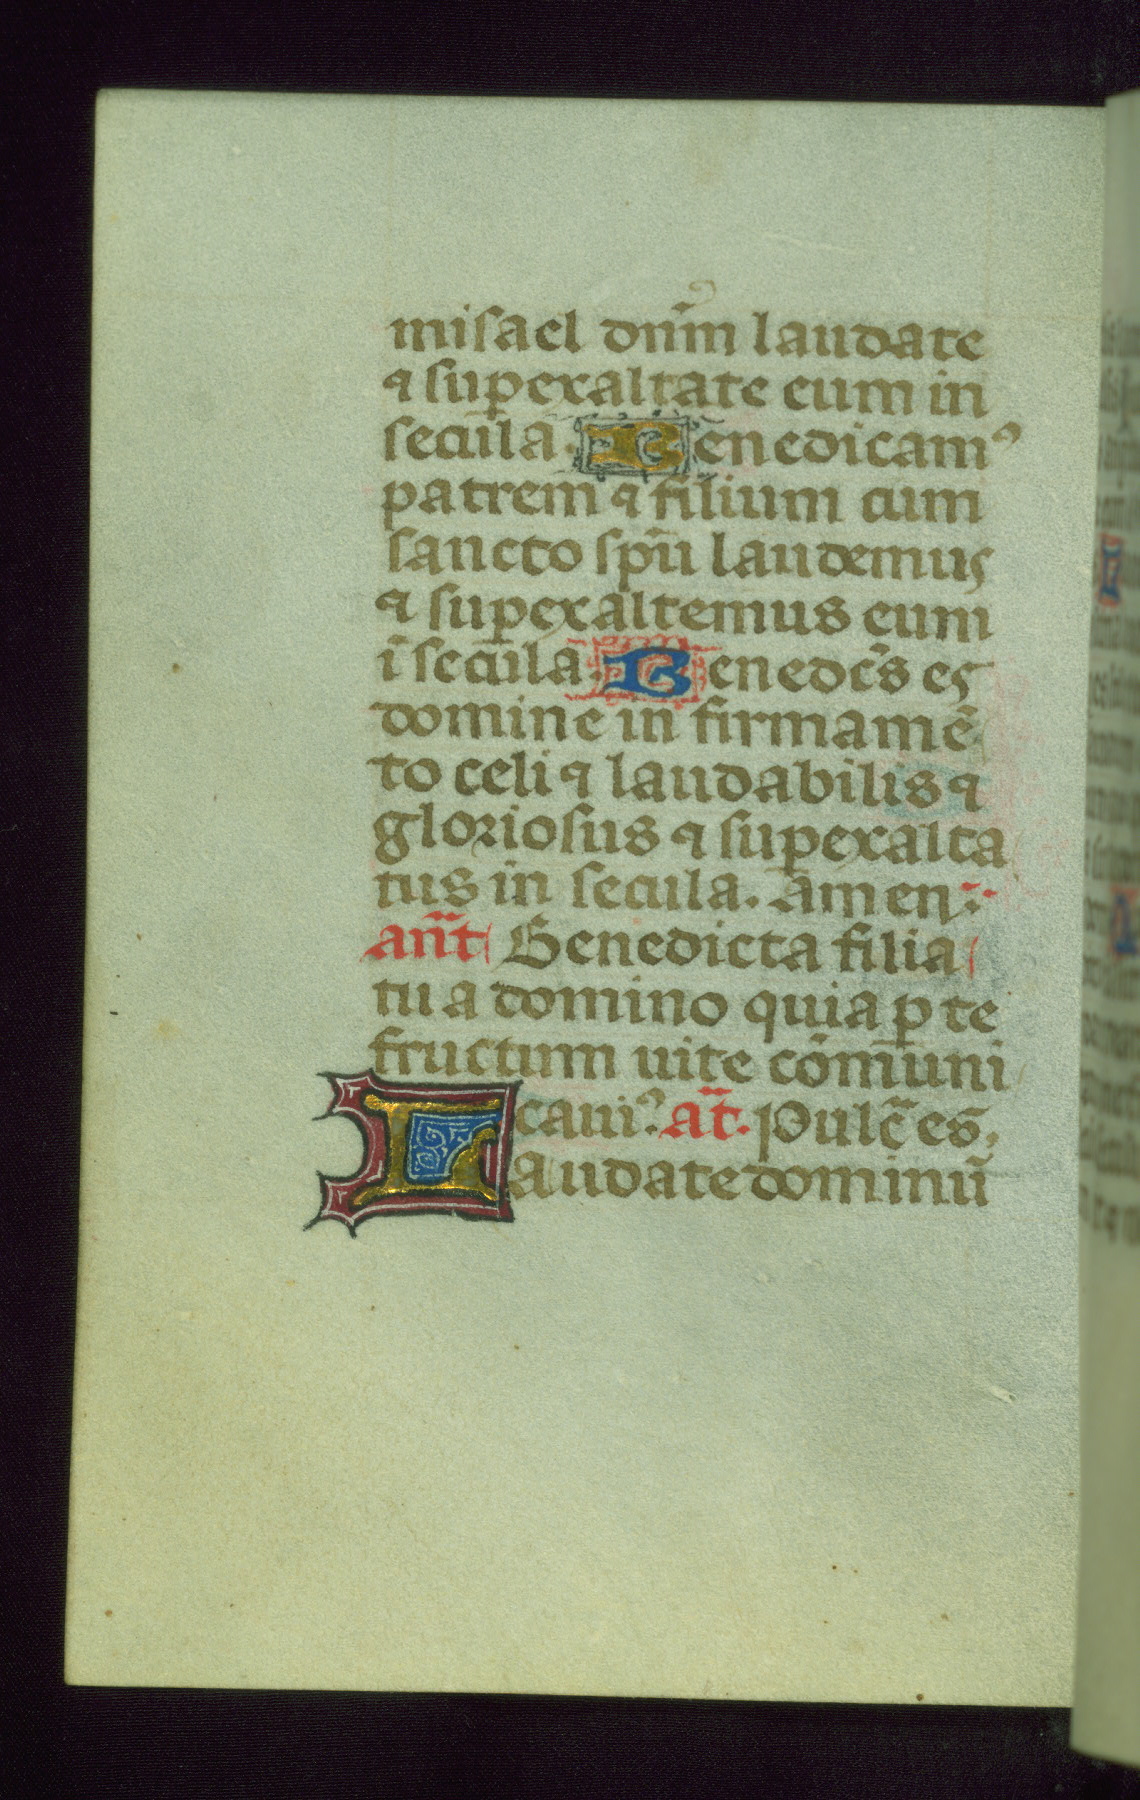 misael dn̄m laudate
⁊ suꝑexaltate eum in
secula. Benedicamꝰ
patrem ⁊ filium cum
sancto sp̄u laudemus
⁊ suꝑexaltemus eum
ī secula. Benedc̄s es
domine in firmamē
to celi ⁊ laudabilis ⁊
gloriosus ⁊ suꝑexalta
tus in secula. amen:
an̄t Benedicta filia
tu a domino quia ꝑ te
fructum uite cōmuni
cauiꝰ. at̄. Pulc̄ es.
Laudate dominū